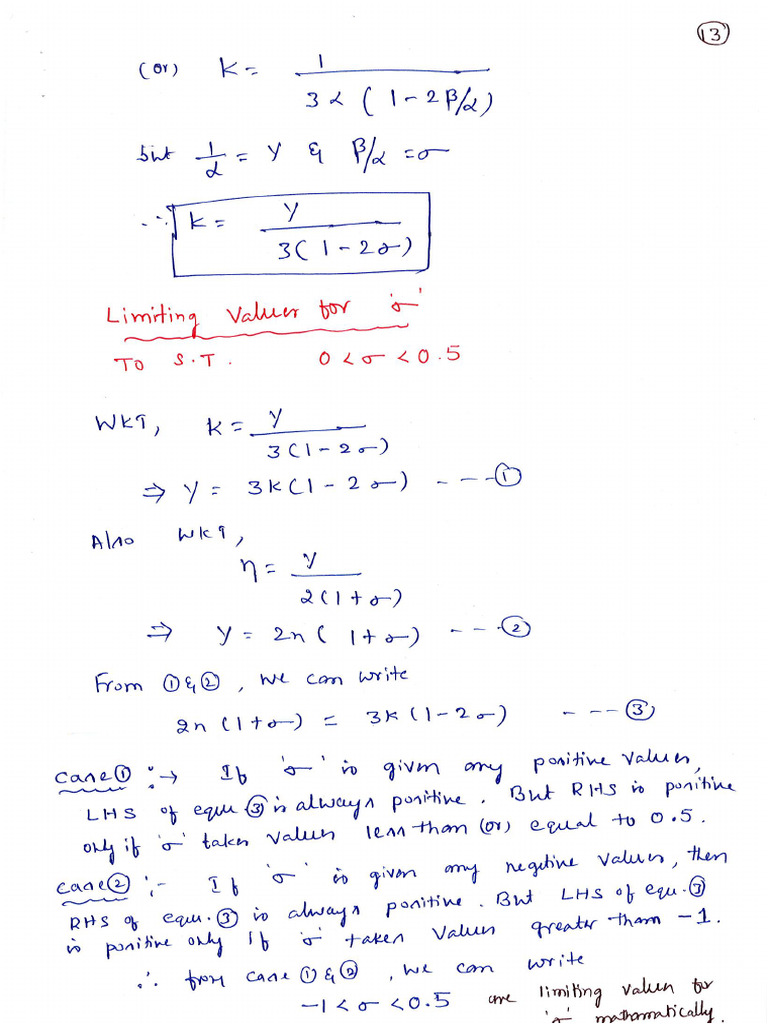 13
(or) K = 1 / 3α ( 1 - 2 β/α)
but 1/α = Y & β/α = σ
∴ K = Y / 3( 1 - 2σ)
Limiting Values for 'σ'
TO S.T. 0 < σ < 0.5
WKT, K = Y / 3(1 - 2σ)
⇒ Y = 3K(1 - 2σ) ---- ①
Also WKT,
η = Y / 2(1 + σ)
⇒ Y = 2n( 1+σ) --- ②
From ① & ②, we can write
2n (1+σ) = 3K (1-2σ) ---- ③
Case① :→ If 'σ' is given any positive values,
LHS of equ ③ is always positive. But RHS is positive
only if 'σ' takes values less than (or) equal to 0.5.
Case② :- If 'σ' is given any negetive values, then
RHS of equ. ③ is always positive. But LHS of equ. ③
is positive only if 'σ' takes values greater than -1.
∴ from case ① & ②, we can write
-1 < σ < 0.5 are limiting values for
'σ' mathematically.